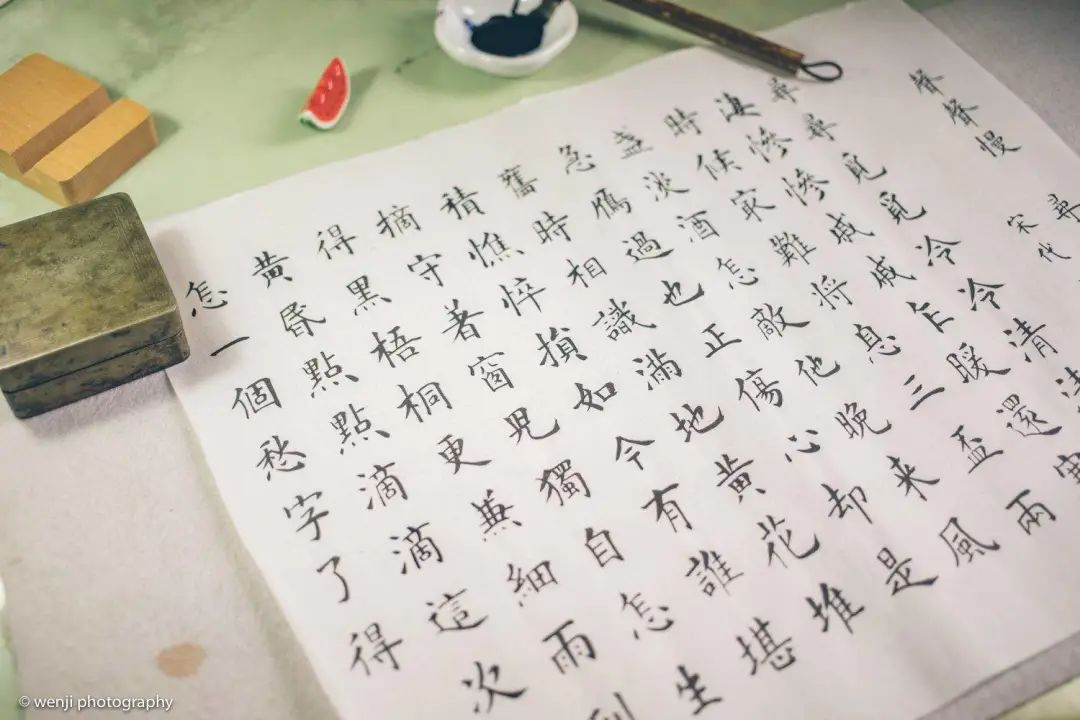 聲聲慢
宋代
尋尋覓覓冷冷清
淒慘慘戚戚乍暖還
時候最難將息三盃兩
盞淡酒怎敵他晚来風
急鴈過也正傷心却是
舊時相識滿地黃花堆
積憔悴損如今有誰堪
摘守著窗兒獨自怎生
得黑梧桐更兼細雨
黃昏點點滴滴這次
怎一個愁字了得
© wenji photography